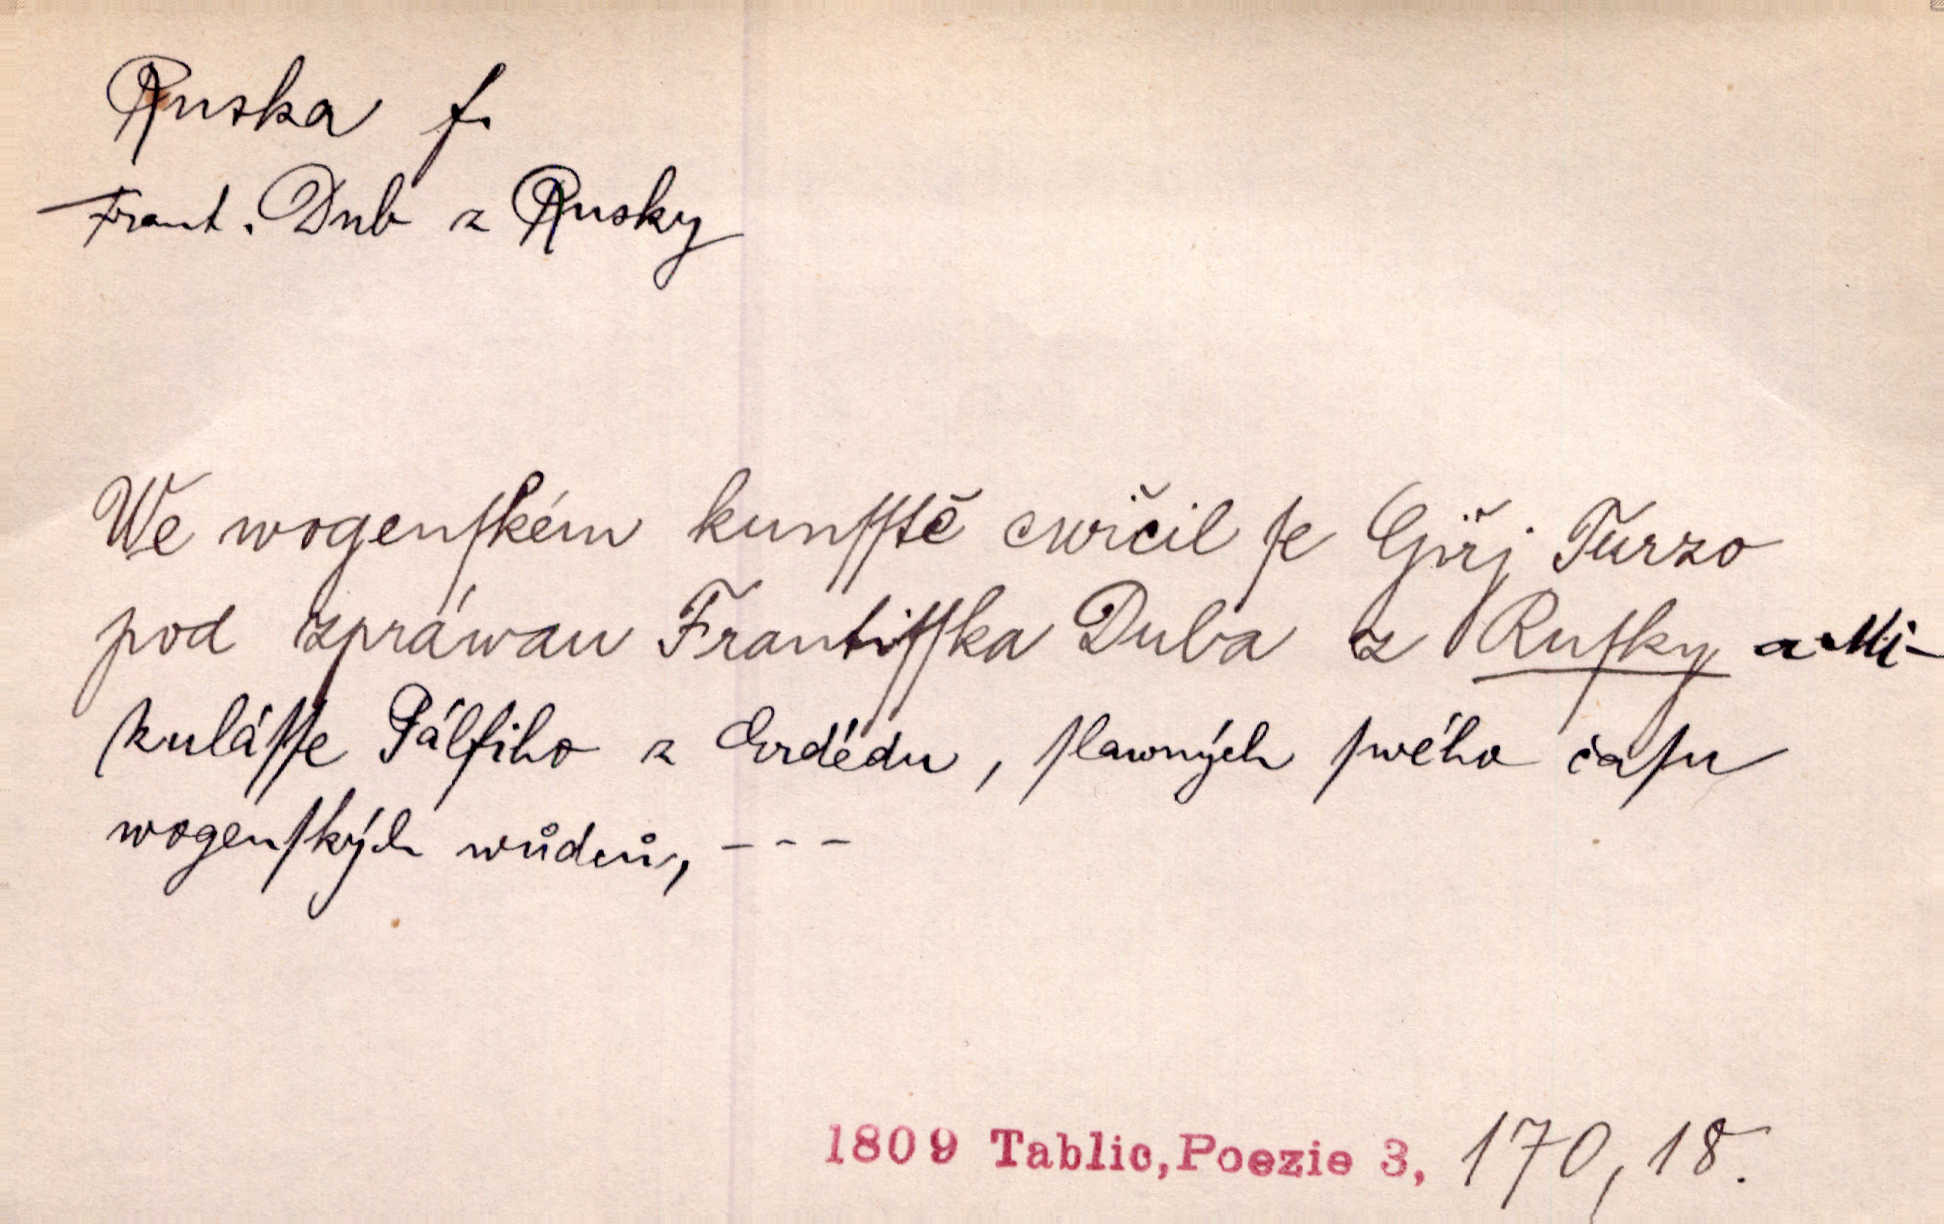 Ruska f.
Frant. Dub z Rusky
We wogenſkém kunſſtě cwičil ſe Giřj Turzo
pod zpráwau Frantiſſka Duba z Ruſky a Mi-
kuláſſe Pálfiho z Erdédu, ſlawných ſwého času
wogenſkých wůdců, - - -
1809 Tablic, Poezie 3, 170, 18.